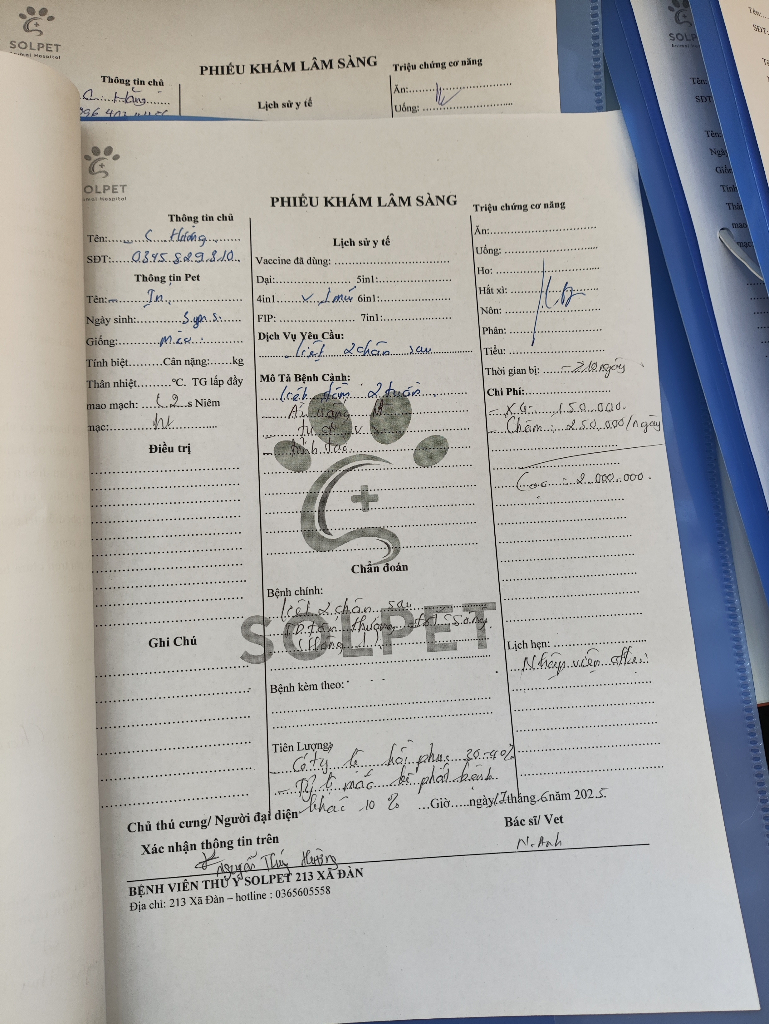 SOLPET
Animal Hospital
PHIẾU KHÁM LÂM SÀNG
Thông tin chủ
Lịch sử y tế
Triệu chứng cơ năng
Ăn:
Uống:
C. Hằng
SOLPET
PHIẾU KHÁM LÂM SÀNG
Thông tin chủ
Tên: C Hường
SĐT: 0345.829.810
Thông tin Pet
Tên: In
Ngày sinh:
Giống: mèo
Tính biệt Cân nặng: kg
Thân nhiệt °C. TG lấp đầy
mao mạch: <2 s Niêm
mạc:
Điều trị
Ghi Chú
Lịch sử y tế
Vaccine đã dùng:
Dại: 5in1:
4in1 v 1 mũi 6in1:
FIP: 7in1:
Dịch Vụ Yêu Cầu:
liệt 2 chân sau
Mô Tả Bệnh Cảnh:
liệt 2 tuần
Chẩn đoán
Bệnh chính:
liệt 2 chân sau
tổn thương đốt sống
SOLPET
Bệnh kèm theo:
Tiên Lượng:
- Có tỷ lệ hồi phục 30-40%
- Tỷ lệ mắc kế phát bệnh
khác 10 %
Triệu chứng cơ năng
Ăn:
Uống:
Ho:
Hắt xì:
Nôn:
Phân:
Tiểu:
Thời gian bị: 10 ngày
Chi Phí:
- XQ: 150.000.
- Châm: 250.000/ngày
Cọc: 2.000.000.
Lịch hẹn:
- Nhập viện
Giờ ngày 17 tháng 6 năm 2025.
Chủ thú cưng/ Người đại diện
Xác nhận thông tin trên
Nguyễn Thúy Hường
Bác sĩ/ Vet
N. Anh
BỆNH VIỆN THÚ Y SOLPET 213 XÃ ĐÀN
Địa chỉ: 213 Xã Đàn – hotline : 0365605558